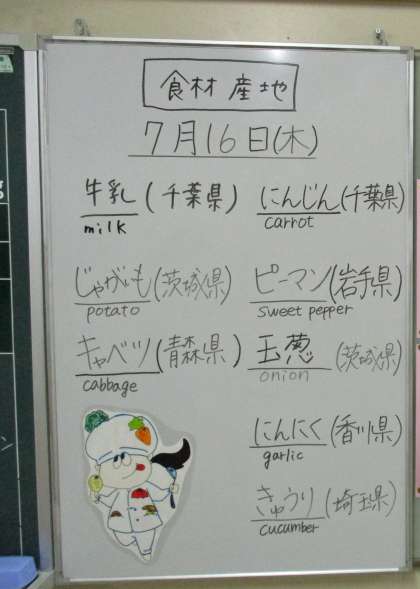 食材 産地
7月16日(木)
牛乳(千葉県)
milk
にんじん(千葉県)
carrot
じゃがいも(茨城県)
potato
ピーマン(岩手県)
sweet pepper
キャベツ(青森県)
cabbage
玉葱(茨城県)
onion
にんにく(香川県)
garlic
きゅうり(埼玉県)
cucumber